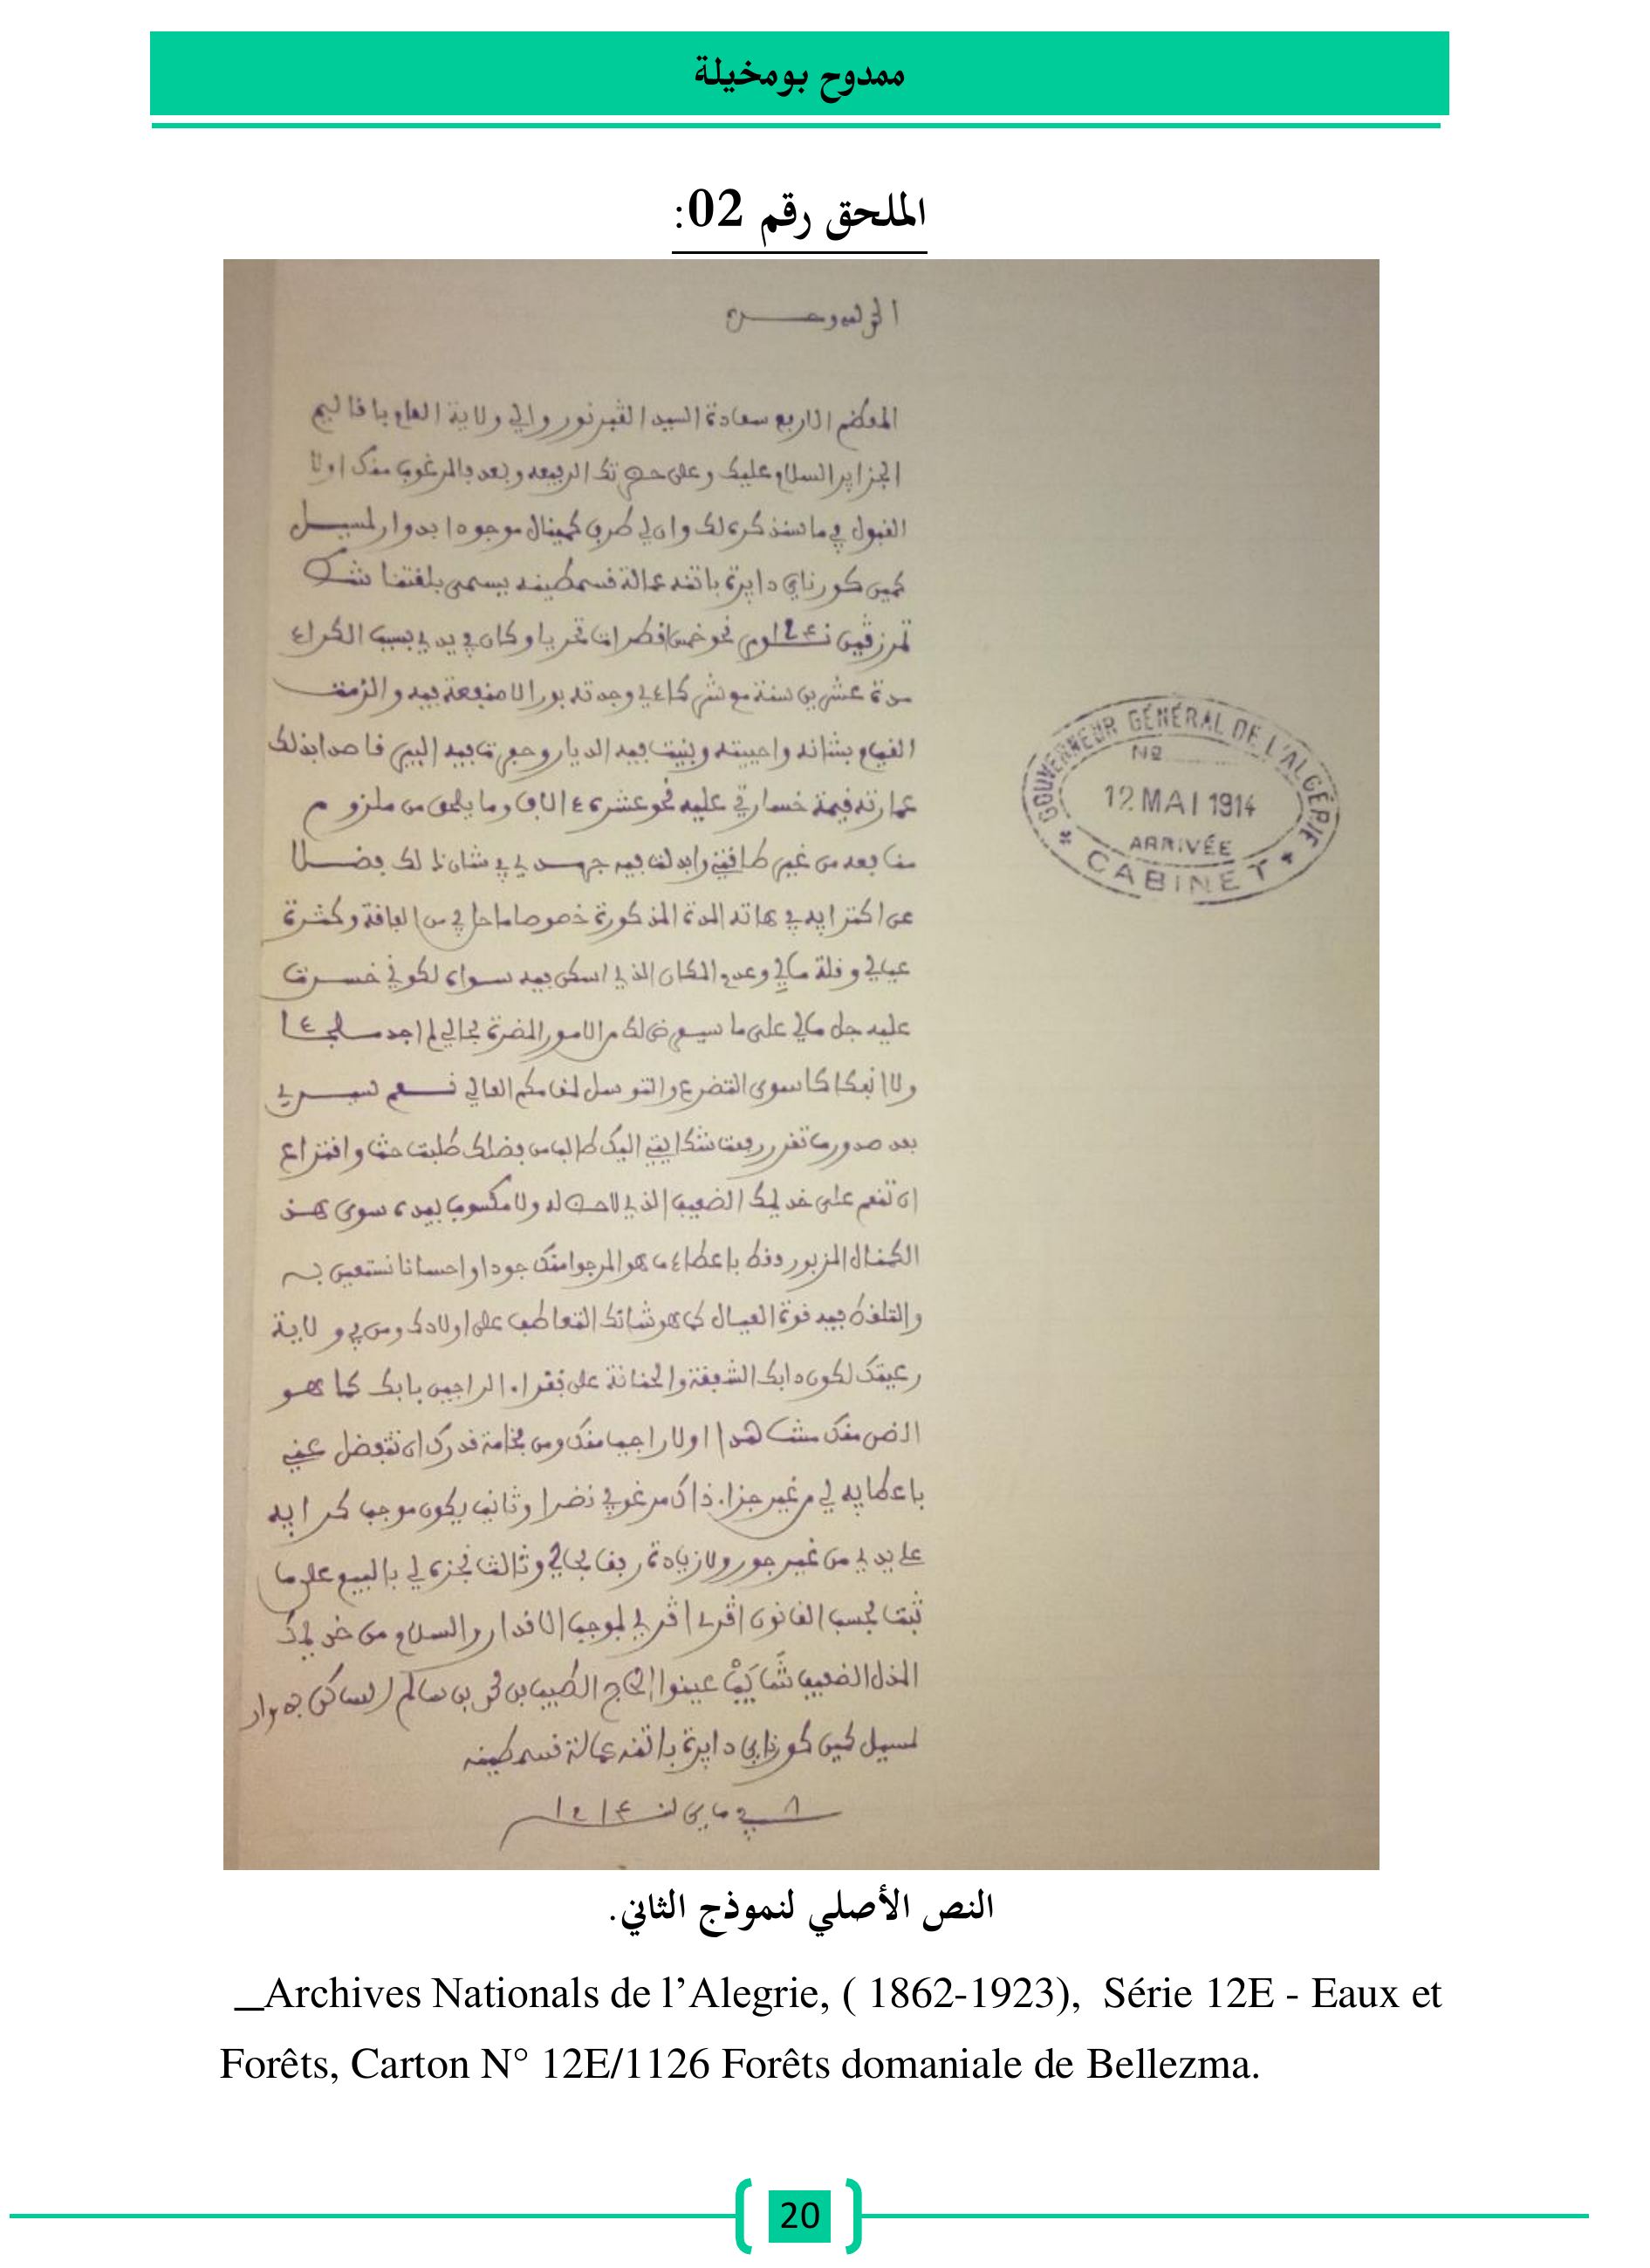 ممدوح بومخيلة
الملحق رقم 02:
الحمد لله وحـــده
المعظم الارفع سعادة السيد القبرنور والي ولاية العام باقاليم
الجزاير السلام عليك وعلى حضرتك الرفيعه وبعد فالمرغوب منك اولا
القبول في ما سنذكره لك وان لي طرف كمينال موجودا بدوار لمسيل
كمين كورناي دايرة باتنه عمالة قسمطينه يسمى بلغتنا
نحو خمس قطرات تحريا وكان في يدي بسبب الكراء
مدة عشرين سنة مع شركاءي وجدته بورا لا منفعة فيه والزمت
القيام بشانه واحييته وبنيت فيه الديار وحفرت فيه البير قاصدا بذلك
عمارته قيمة خسارتي عليه نحو عشرة ءالاف وما يلحق من ملزوم
منا بعد من غير طاقتي وابذلت فيه جهدي في شان ذلك فضلا
عن اكترايه في هاته المدة المذكورة خصوصا ما حل بي من الفاقة وكثرة
عيالي وقلة مالي وعدم المكان الذي اسكن فيه سواه لكوني خسرت
عليه جل مالي على ما سيعرض لك من الامور المضرة بحالي لم اجد ملجئا
ولا سوى التضرع والتوسل لمقامكم العالي نعم سيدي
بعد صدور ما تقرر رفعت شكايتي اليك طالبا من فضلك طلبت
ان تنعم على خديمك الضعيف الذي لا له ولا مكسوب بيده سوى هذا
الكمنال المزبور فقط باعطاء ما هو المرجو منك جودا واحسانا نستعين به
والتلفظ فيه قوة العيال كما هو شانك التعاطف على اولادك ومن في ولاية
رعيتك لكون دابك الشفقة والحنانة على فقراء الراجين بابك كما هو
الضن منك مشاهدا اولا راجيا منك ومن فخامة قدرك ان تتفضل عني
باعطايه لي من غير جزاء ذاك مرغوبي نضرا وثانيا يكون موجب كرايه
على يدي من غير جور ولا زيادة رفقا بحالي وثالثا تجزه لي بالبيع على ما
ثبت بحسب القانون لموجب الاقدار والسلام من خديمك
المذل الضعيف الحاج الطيب بن محمد بن سالم الساكن بدوار
لمسيل كمين كورناي دايرة باتنه عمالة قسمطينه
٨ في ماي سنة ١٩١٤
GOUVERNEUR GÉNÉRAL DE L'ALGÉRIE
No
12 MAI 1914
ARRIVÉE
* CABINET *
النص الأصلي لنموذج الثاني.
_Archives Nationals de l’Alegrie, ( 1862-1923), Série 12E - Eaux et
Forêts, Carton N° 12E/1126 Forêts domaniale de Bellezma.
20